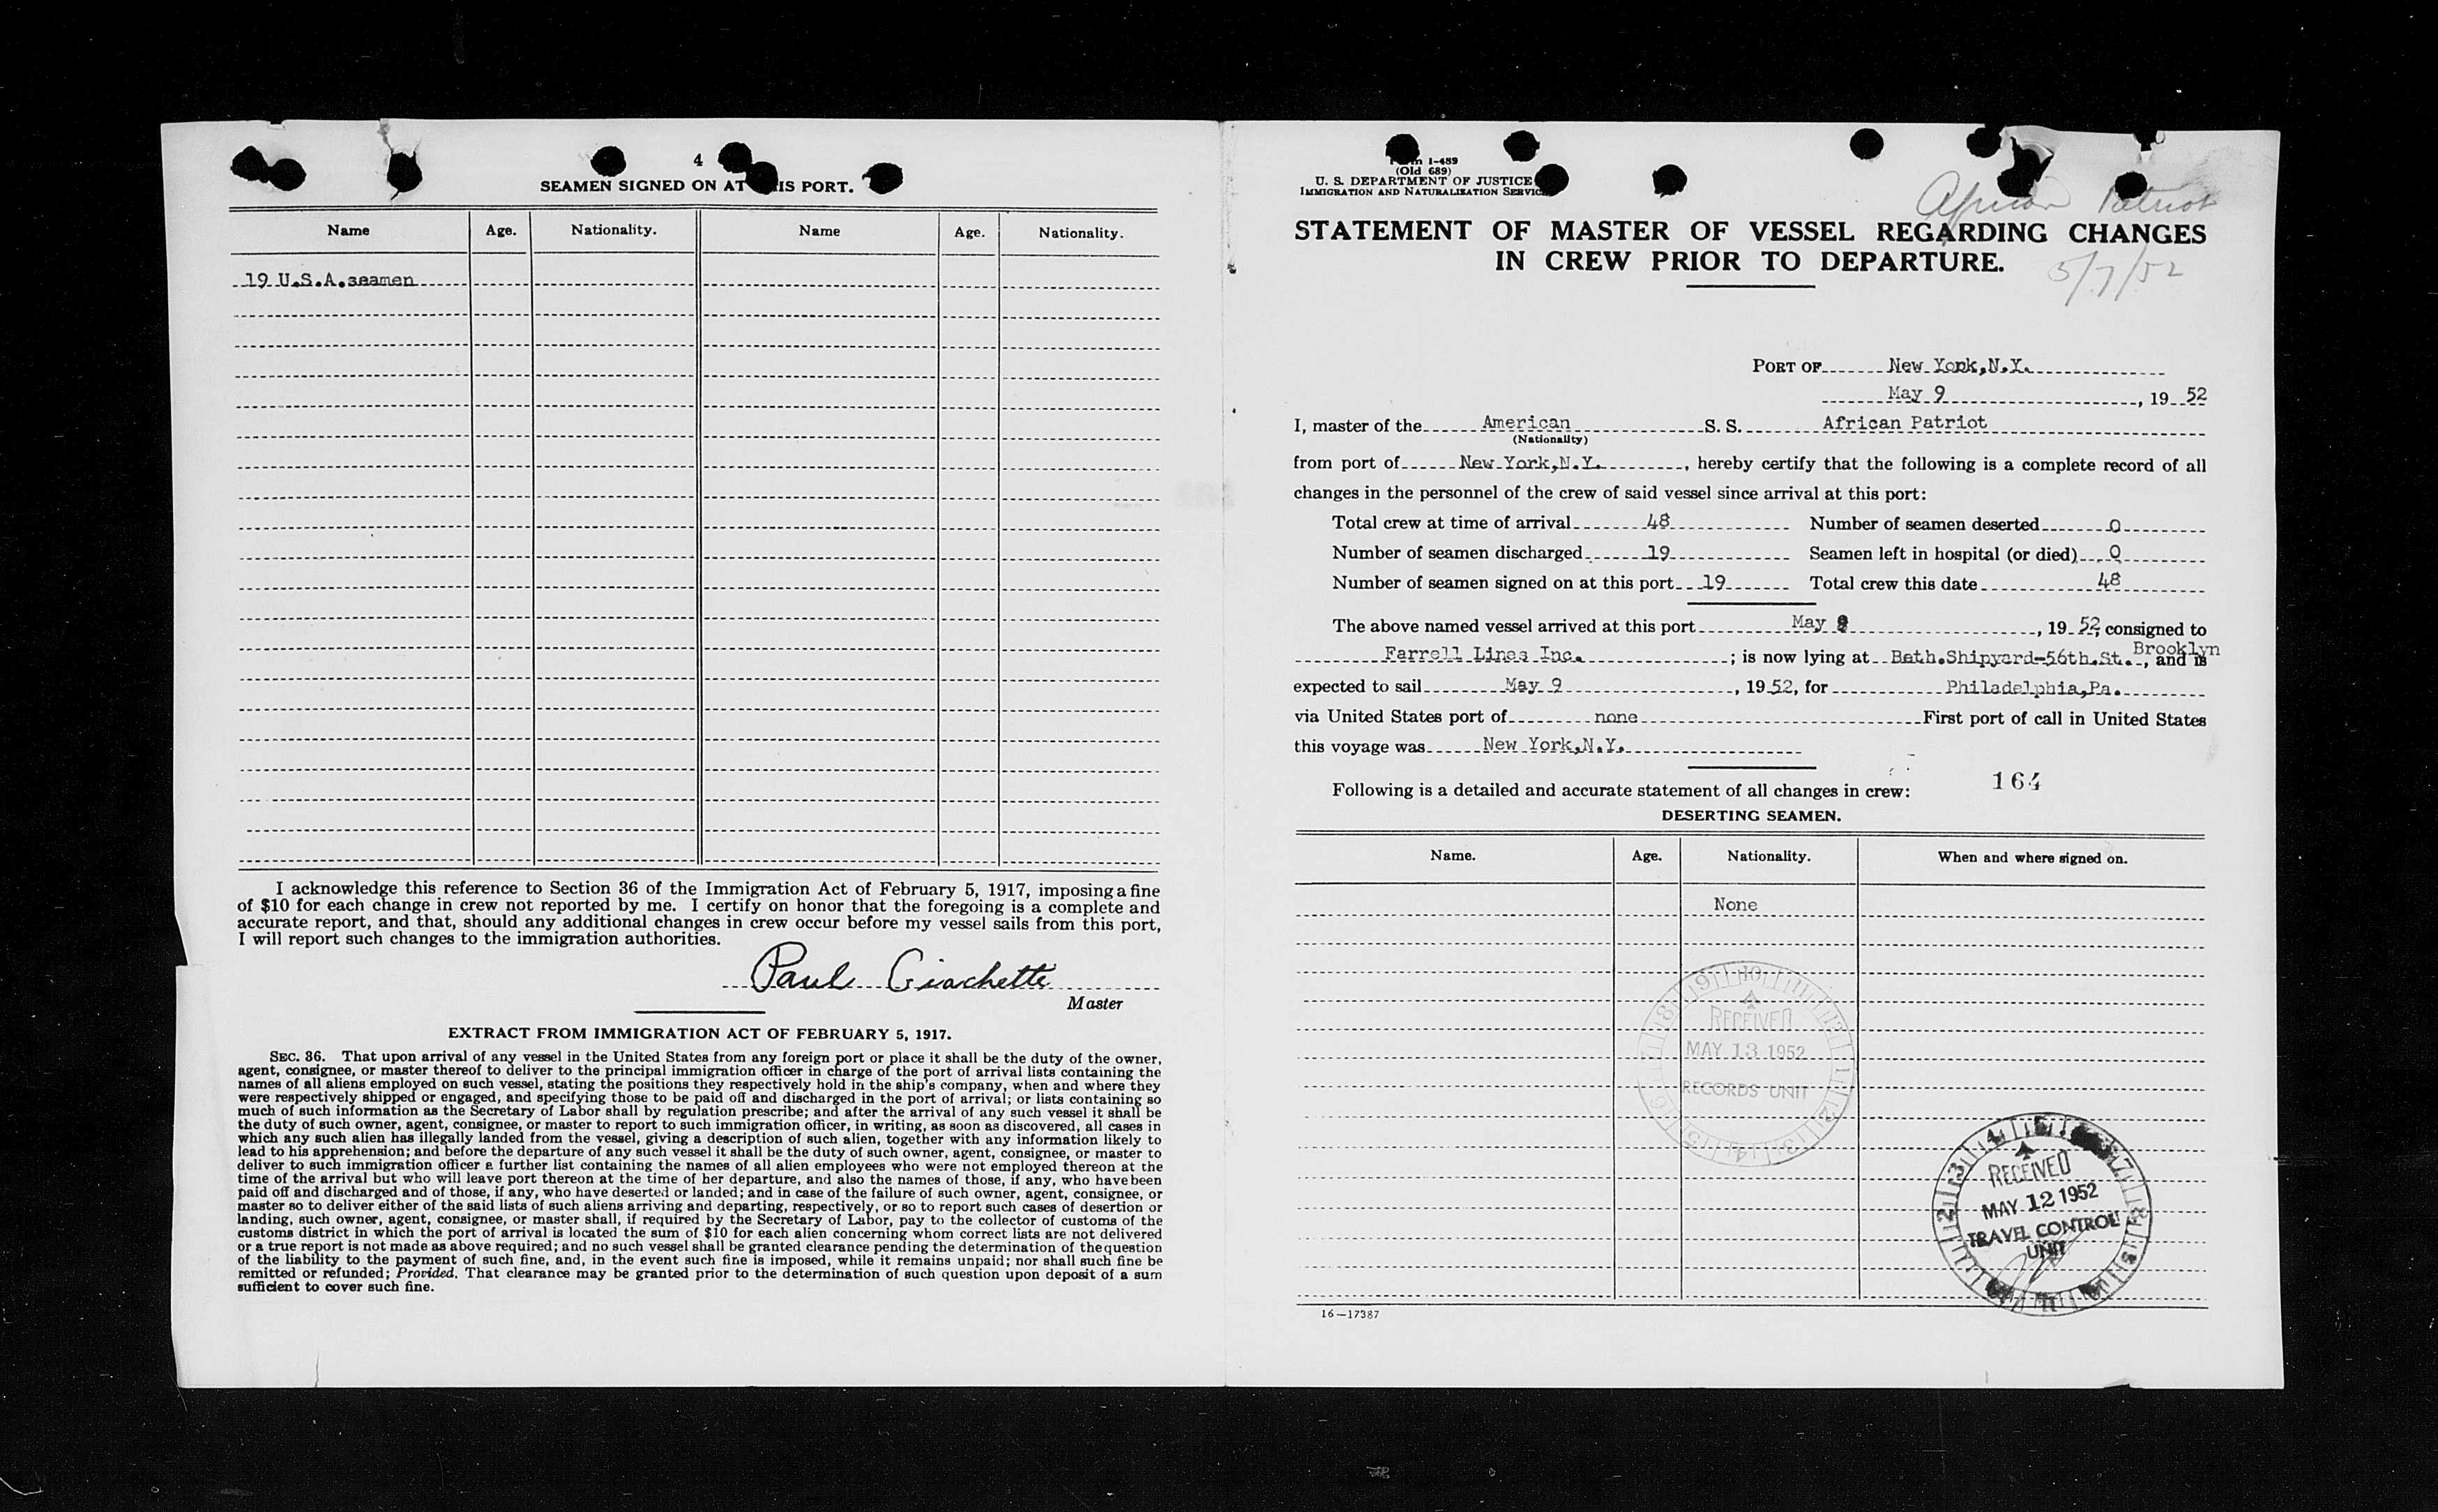 4
SEAMEN SIGNED ON AT THIS PORT.
Name Age. Nationality. Name Age. Nationality.
19 U.S.A.seamen
I acknowledge this reference to Section 36 of the Immigration Act of February 5, 1917, imposing a fine
of $10 for each change in crew not reported by me. I certify on honor that the foregoing is a complete and
accurate report, and that, should any additional changes in crew occur before my vessel sails from this port,
I will report such changes to the immigration authorities.
Paul Giachette
Master
EXTRACT FROM IMMIGRATION ACT OF FEBRUARY 5, 1917.
SEC. 36. That upon arrival of any vessel in the United States from any foreign port or place it shall be the duty of the owner,
agent, consignee, or master thereof to deliver to the principal immigration officer in charge of the port of arrival lists containing the
names of all aliens employed on such vessel, stating the positions they respectively hold in the ship's company, when and where they
were respectively shipped or engaged, and specifying those to be paid off and discharged in the port of arrival; or lists containing so
much of such information as the Secretary of Labor shall by regulation prescribe; and after the arrival of any such vessel it shall be
the duty of such owner, agent, consignee, or master to report to such immigration officer, in writing, as soon as discovered, all cases in
which any such alien has illegally landed from the vessel, giving a description of such alien, together with any information likely to
lead to his apprehension; and before the departure of any such vessel it shall be the duty of such owner, agent, consignee, or master to
deliver to such immigration officer a further list containing the names of all alien employees who were not employed thereon at the
time of the arrival but who will leave port thereon at the time of her departure, and also the names of those, if any, who have been
paid off and discharged and of those, if any, who have deserted or landed; and in case of the failure of such owner, agent, consignee, or
master so to deliver either of the said lists of such aliens arriving and departing, respectively, or so to report such cases of desertion or
landing, such owner, agent, consignee, or master shall, if required by the Secretary of Labor, pay to the collector of customs of the
customs district in which the port of arrival is located the sum of $10 for each alien concerning whom correct lists are not delivered
or a true report is not made as above required; and no such vessel shall be granted clearance pending the determination of the question
of the liability to the payment of such fine, and, in the event such fine is imposed, while it remains unpaid; nor shall such fine be
remitted or refunded; Provided, That clearance may be granted prior to the determination of such question upon deposit of a sum
sufficient to cover such fine.
Form I-489
(Old 689)
U. S. DEPARTMENT OF JUSTICE
IMMIGRATION AND NATURALIZATION SERVICE
African Patriot
STATEMENT OF MASTER OF VESSEL REGARDING CHANGES
IN CREW PRIOR TO DEPARTURE.
5/7/52
PORT OF New York,N.Y.
May 9, 19 52
I, master of the American S. S. African Patriot
(Nationality)
from port of New York,N.Y., hereby certify that the following is a complete record of all
changes in the personnel of the crew of said vessel since arrival at this port:
Total crew at time of arrival 48 Number of seamen deserted 0
Number of seamen discharged 19 Seamen left in hospital (or died) 0
Number of seamen signed on at this port 19 Total crew this date 48
The above named vessel arrived at this port May, 19 52, consigned to
Farrell Lines Inc.; is now lying at Beth.Shipyard-56th.St. Brooklyn, and is
expected to sail May 9, 19 52, for Philadelphia,Pa.
via United States port of none First port of call in United States
this voyage was New York,N.Y.
164
Following is a detailed and accurate statement of all changes in crew:
DESERTING SEAMEN.
Name. Age. Nationality. When and where signed on.
None
RECEIVED
MAY 13 1952
RECORDS UNIT
RECEIVED
MAY 12 1952
TRAVEL CONTROL
UNIT
16—17387